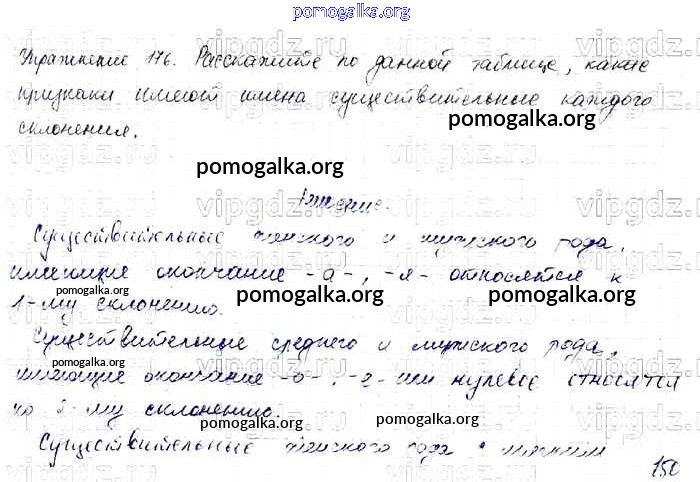 pomogalka.org
Упражнение 176. Расскажите по данной таблице, какие
признаки имеют имена существительные каждого
склонения.
pomogalka.org
pomogalka.org
Решение.
Существительные женского и мужского рода,
имеющие окончание -а-, -я- относятся к
pomogalka.org pomogalka.org pomogalka.org
1-му склонению.
Существительные среднего и мужского рода,
pomogalka.org
имеющие окончание -о-, -е- или нулевое относятся
ко 2-му склонению.
pomogalka.org pomogalka.org
Существительные женского рода с нулевым
pomogalka.org
150
vipgdz.ru